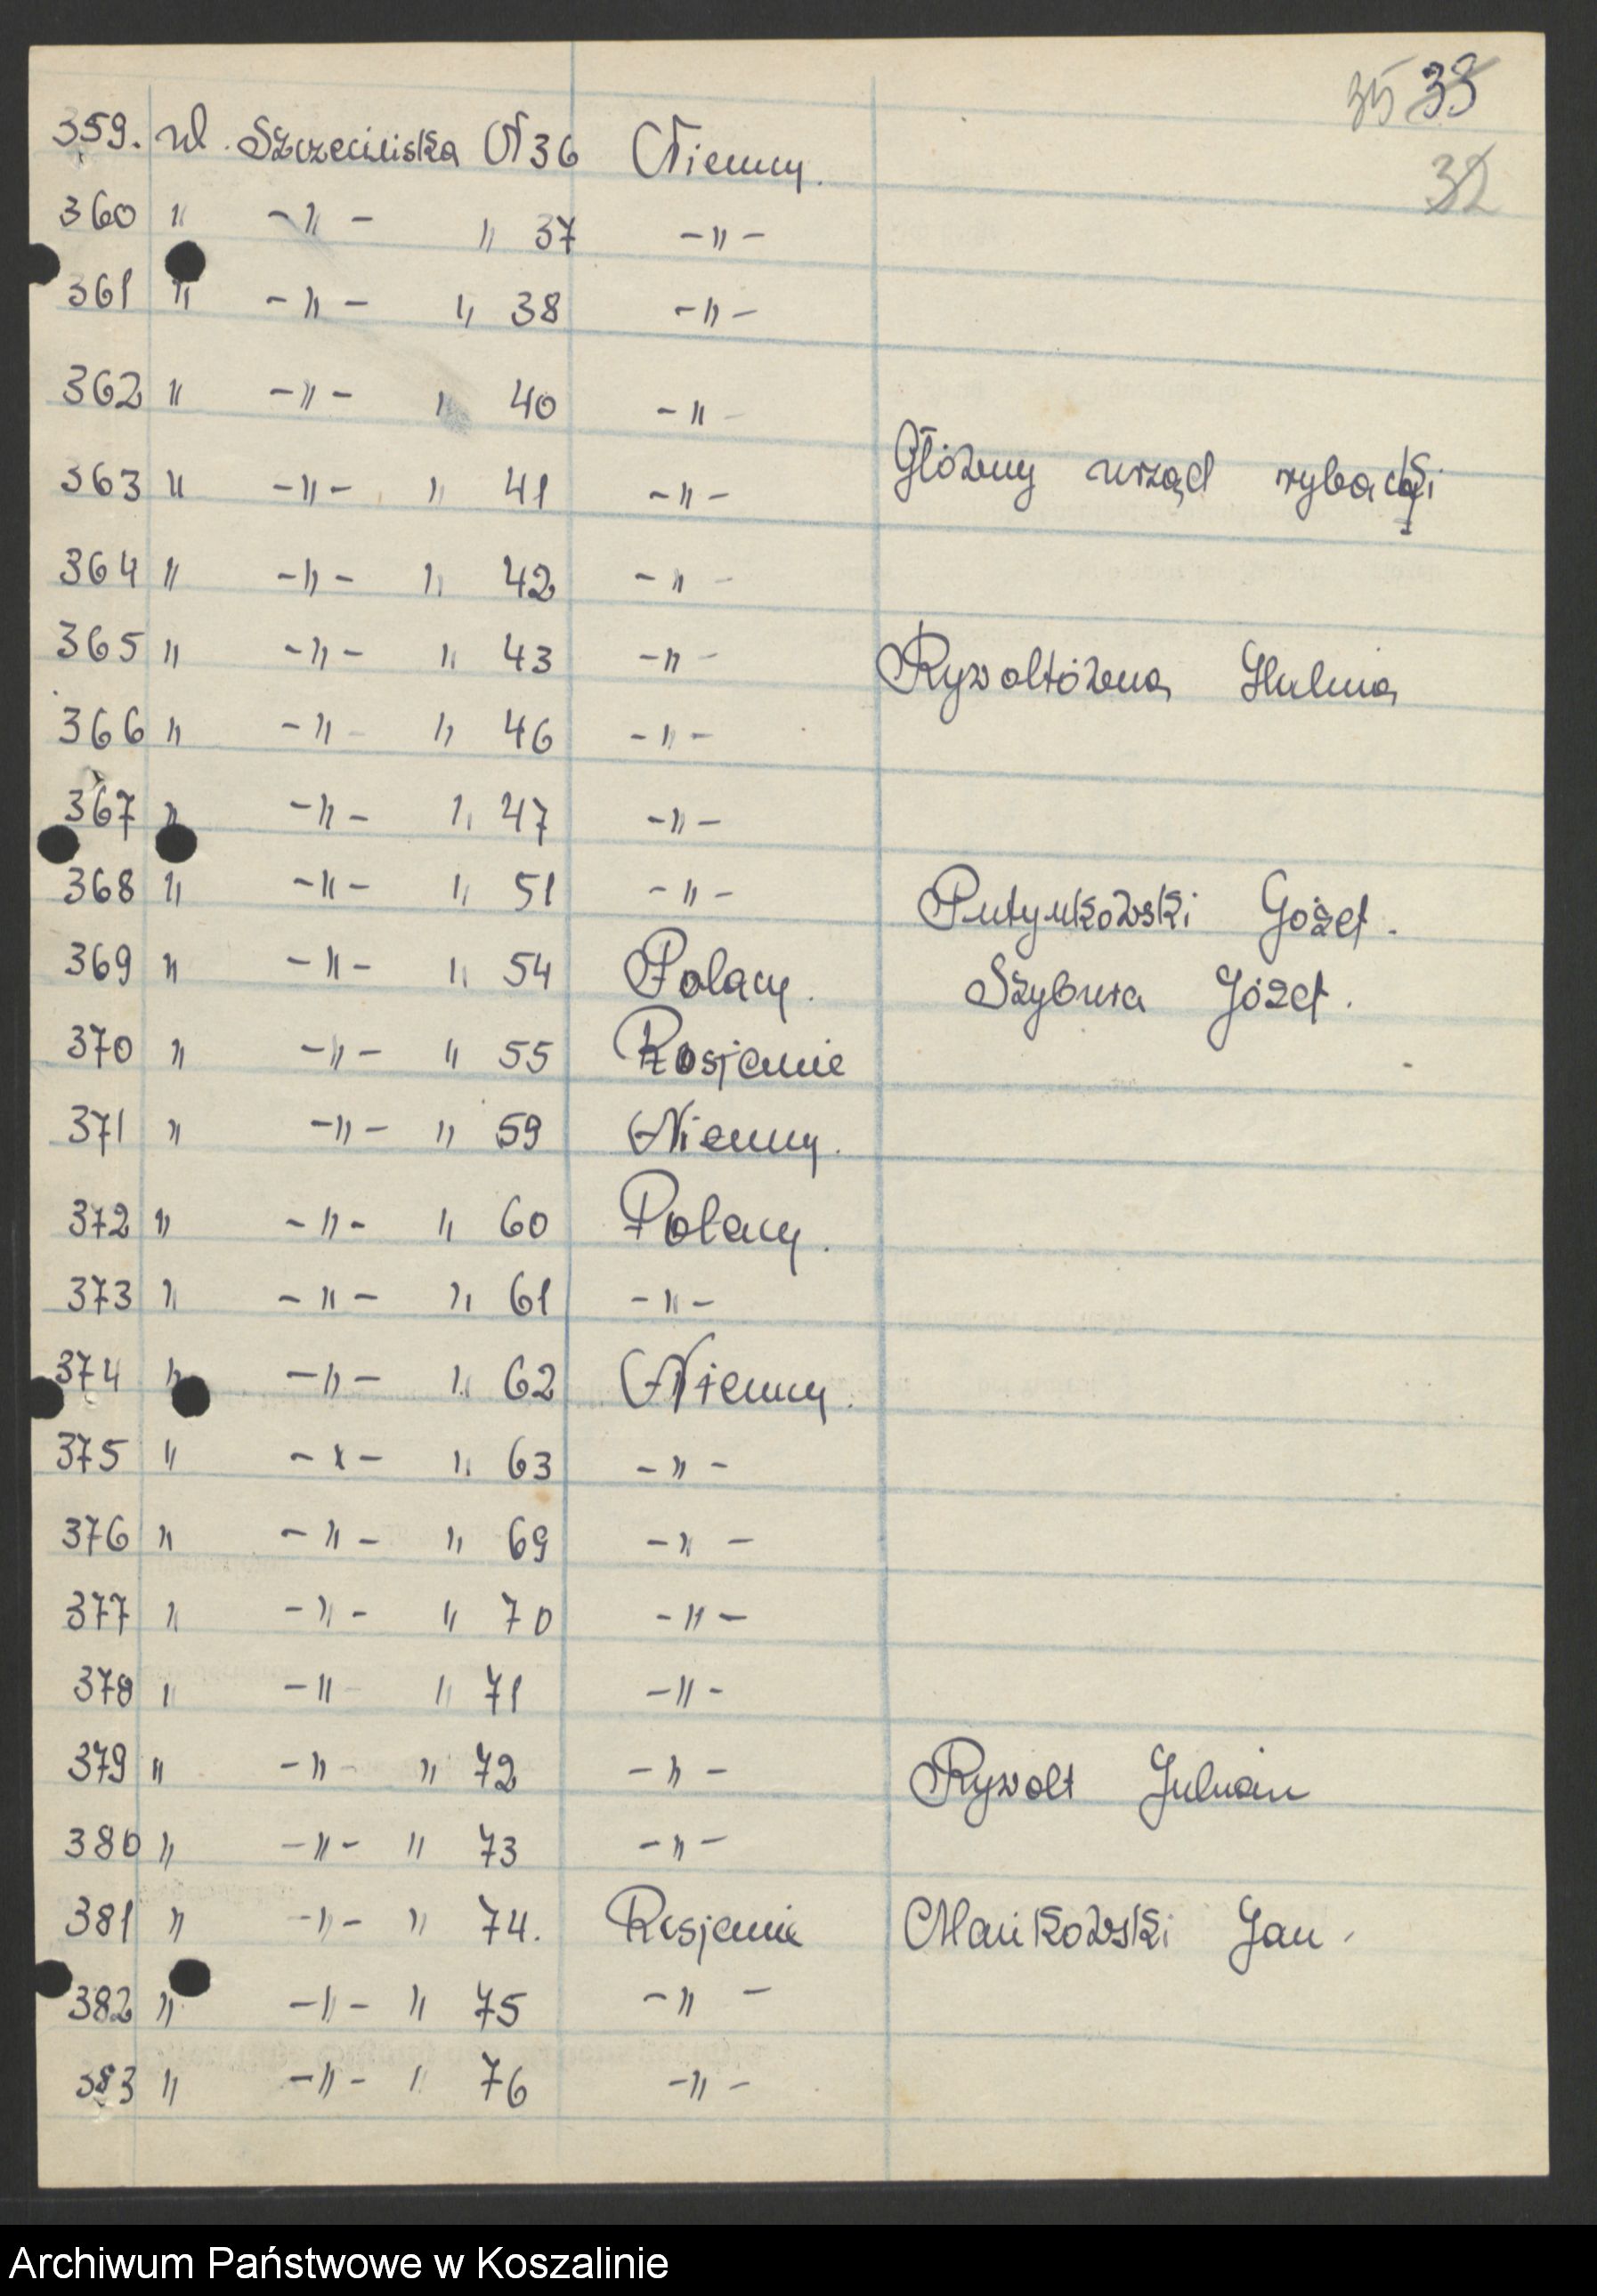 35 33
32
359. ul. Szczecińska N 36 Niemcy.
360 " -"- " 37 -"-
361 " -"- " 38 -"-
362 " -"- " 40 -"-
363 " -"- " 41 -"- Główny urząd rybacki
364 " -"- " 42 -"-
365 " -"- " 43 -"- Rywoltówna Halina
366 " -"- " 46 -"-
367 " -"- " 47 -"-
368 " -"- " 51 -"- Putynkowski Józef.
369 " -"- " 54 Polacy. Szybura Józef.
370 " -"- " 55 Rosjanie
371 " -"- " 59 Niemcy.
372 " -"- " 60 Polacy.
373 " -"- " 61 -"-
374 " -"- " 62 Niemcy.
375 " -"- " 63 -"-
376 " -"- " 69 -"-
377 " -"- " 70 -"-
378 " -"- " 71 -"-
379 " -"- " 72 -"- Rywolt Julian
380 " -"- " 73 -"-
381 " -"- " 74. Rosjanie Mańkowski Jan.
382 " -"- " 75 -"-
383 " -"- " 76 -"-
Archiwum Państwowe w Koszalinie